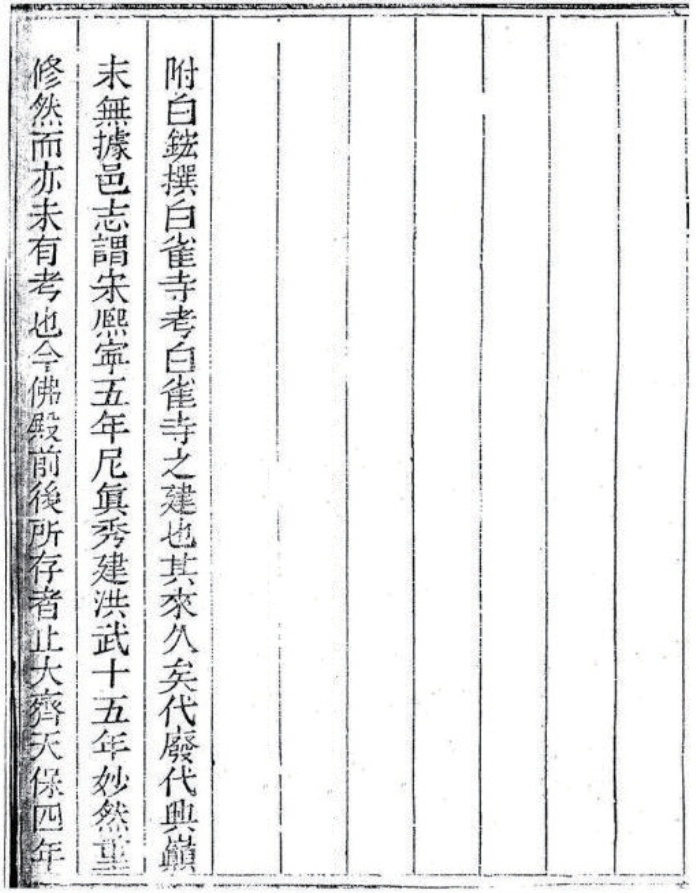 附白鋐撰白雀寺考白雀寺之建也其來久矣代廢代興巔
末無據邑志謂宋熈寧五年尼眞秀建洪武十五年妙然重
修然而亦未有考也今佛殿前後所存者止大齊天保四年